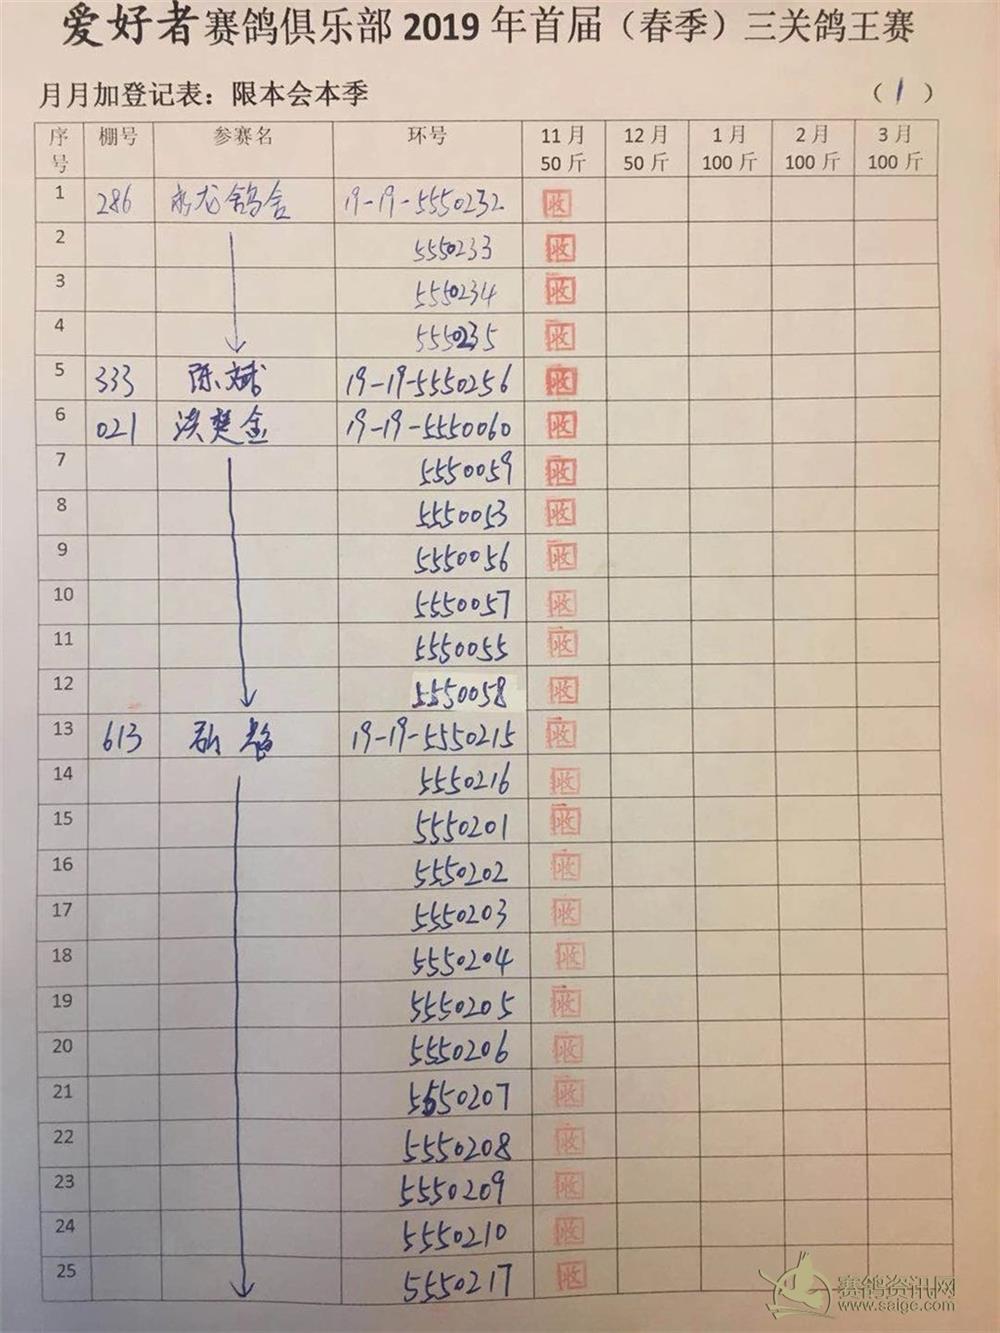 爱好者赛鸽俱乐部 2019 年首届（春季）三关鸽王赛
月月加登记表：限本会本季 （1）
序号 棚号 参赛名 环号 11月50斤 12月50斤 1月100斤 2月100斤 3月100斤
1 286 龙鸽舍 19-19-5550232 收
2 5550233 收
3 5550234 收
4 5550235 收
5 333 陈斌 19-19-5550256 收
6 021 洪楚金 19-19-5550060 收
7 5550059 收
8 5550053 收
9 5550056 收
10 5550057 收
11 5550055 收
12 5550058 收
13 613 19-19-5550215 收
14 5550216 收
15 5550201 收
16 5550202 收
17 5550203 收
18 5550204 收
19 5550205 收
20 5550206 收
21 5550207 收
22 5550208 收
23 5550209 收
24 5550210 收
25 5550217 收
赛鸽资讯网
www.saige.com